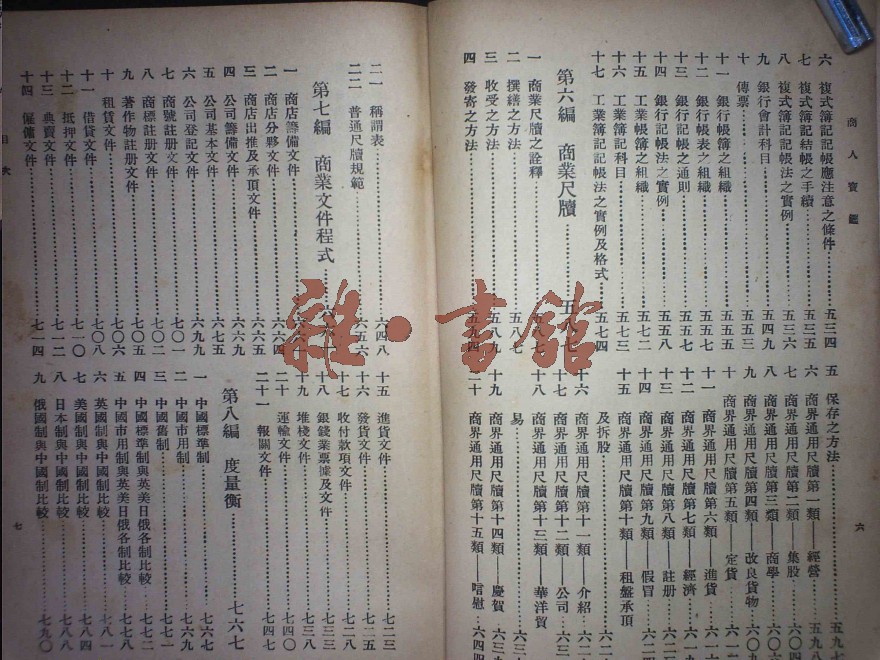 商人寶鑑
六 複式簿記記帳應注意之條件 五三四
七 複式簿記結帳之手續 五三五
八 複式簿記記帳法之實例 五三六
九 銀行會計科目 五四九
十 傳票 五五三
十一 銀行帳簿之組織 五五五
十二 銀行帳表之組織 五五七
十三 銀行簿記之通則
十四 銀行記帳法之實例
十五 工業帳簿之組織 五七二
十六 工業簿記科目 五七三
十七 工業簿記記帳法之實例及格式 五七四
第六編 商業尺牘 五八七
一 商業尺牘之詮釋 五八七
二 撰繕之方法 五八七
三 收受之方法 五八九
四 發寄之方法 五九四
五 保存之方法 五九七
六 商界通用尺牘第一類——經營 五九八
七 商界通用尺牘第二類——集股 六〇四
八 商界通用尺牘第三類——商學 六〇
九 商界通用尺牘第四類——改良貨物 六〇
十 商界通用尺牘第五類——定貨 六一
十一 商界通用尺牘第六類——進貨 六一
十二 商界通用尺牘第七類——經濟 六一九
十三 商界通用尺牘第八類——註册 六二
十四 商界通用尺牘第九類——假冒 六二四
十五 商界通用尺牘第十類——租盤承頂
及拆股 六二
十六 商界通用尺牘第十一類——介紹 六二
十七 商界通用尺牘第十二類——公司 六三
十八 商界通用尺牘第十三類——華洋貿
易 六三
十九 商界通用尺牘第十四類——慶賀 六三九
二十 商界通用尺牘第十五類——唁慰 六四四
六
二一 稱謂表 六四八
二二 普通尺牘規範 六五六
第七編 商業文件程式
一 商店籌備文件
二 商店分夥文件 六六四
三 商店出推及承頂文件 六六五
四 公司籌備文件 六六九
五 公司基本文件 六七五
六 公司登記文件 六九九
七 商號註册文件 七〇一
八 商標註册文件 七〇二
九 著作物註册文件 七〇五
十 租賃文件 七〇八
十一 借貸文件 七一〇
十二 抵押文件 七一二
十三 典賣文件
十四 僱傭文件 七一四
十五 進貨文件 七二三
十六 發貨文件 七二五
十七 收付款項文件 七二八
十八 銀錢業票據及文件 七三三
十九 堆棧文件 七三八
二十 運輸文件 七四〇
二十一 報關文件 七四七
第八編 度量衡 七六七
一 中國標準制 七六七
二 中國市用制 七六九
三 中國舊制 七七一
四 中國標準制與英美日俄各制比較 七七二
五 中國市用制與英美日俄各制比較 七七八
六 英國制與中國制比較 七八一
七 美國制與中國制比較 七八四
八 日本制與中國制比較 七八八
九 俄國制與中國制比較 七九〇
七
雜·書館